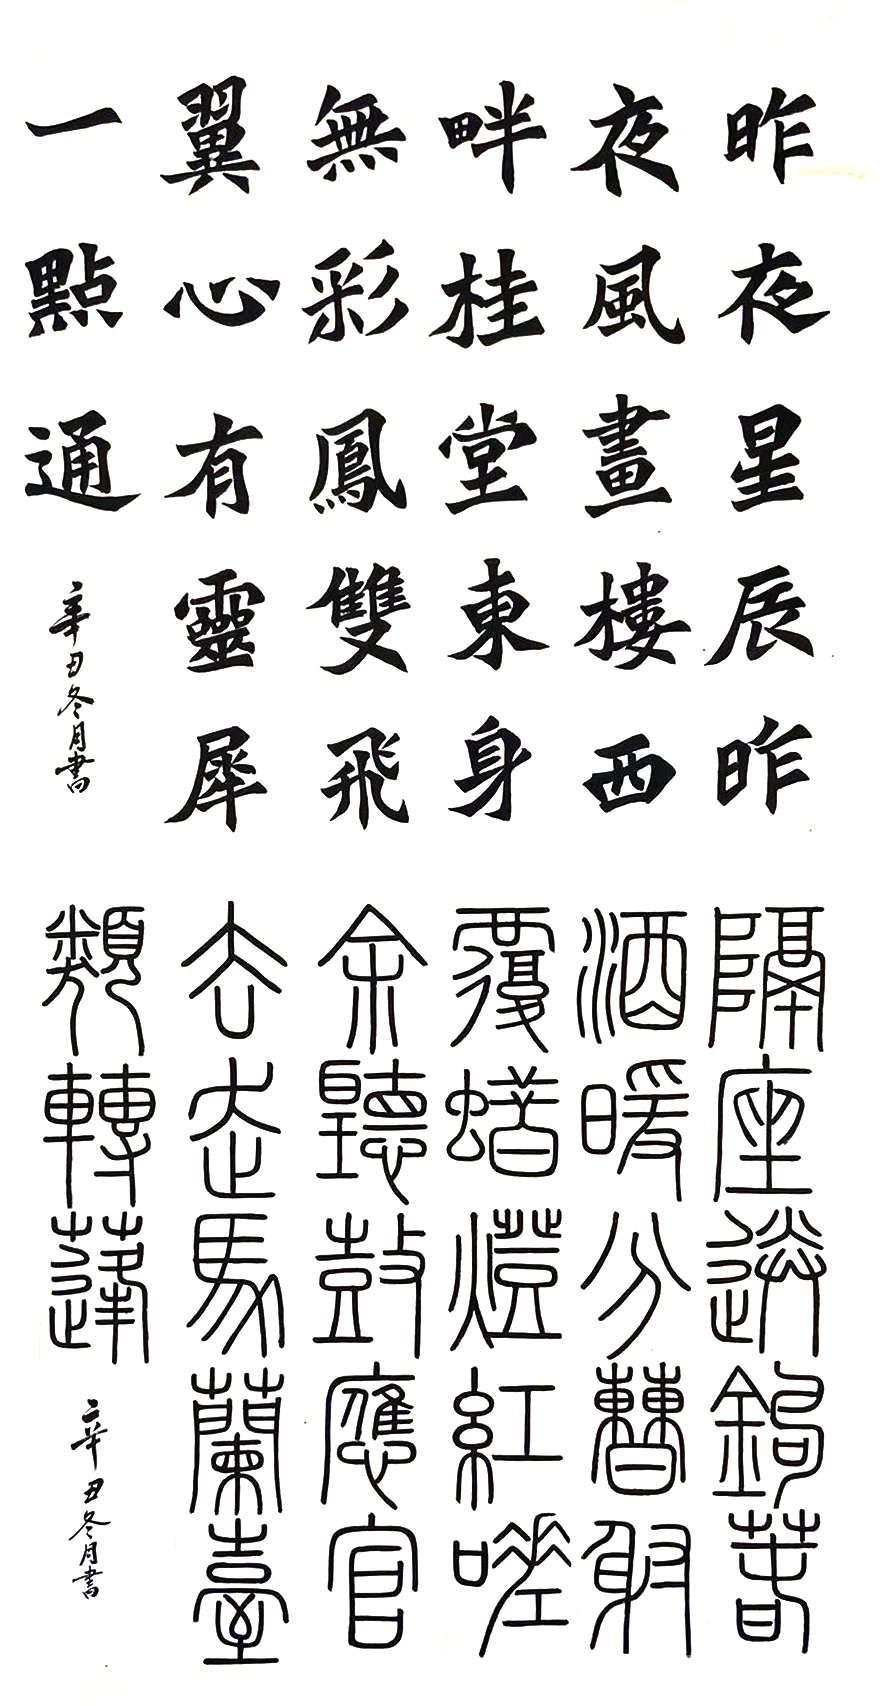 昨夜星辰昨
夜風畫樓西
畔桂堂東身
無彩鳳雙飛
翼心有靈犀
一點通
辛丑冬月書
隔座送鉤春
酒暖分曹射
覆蜡燈紅嗟
余聽鼓應官
去走馬蘭臺
類轉蓬
辛丑冬月書